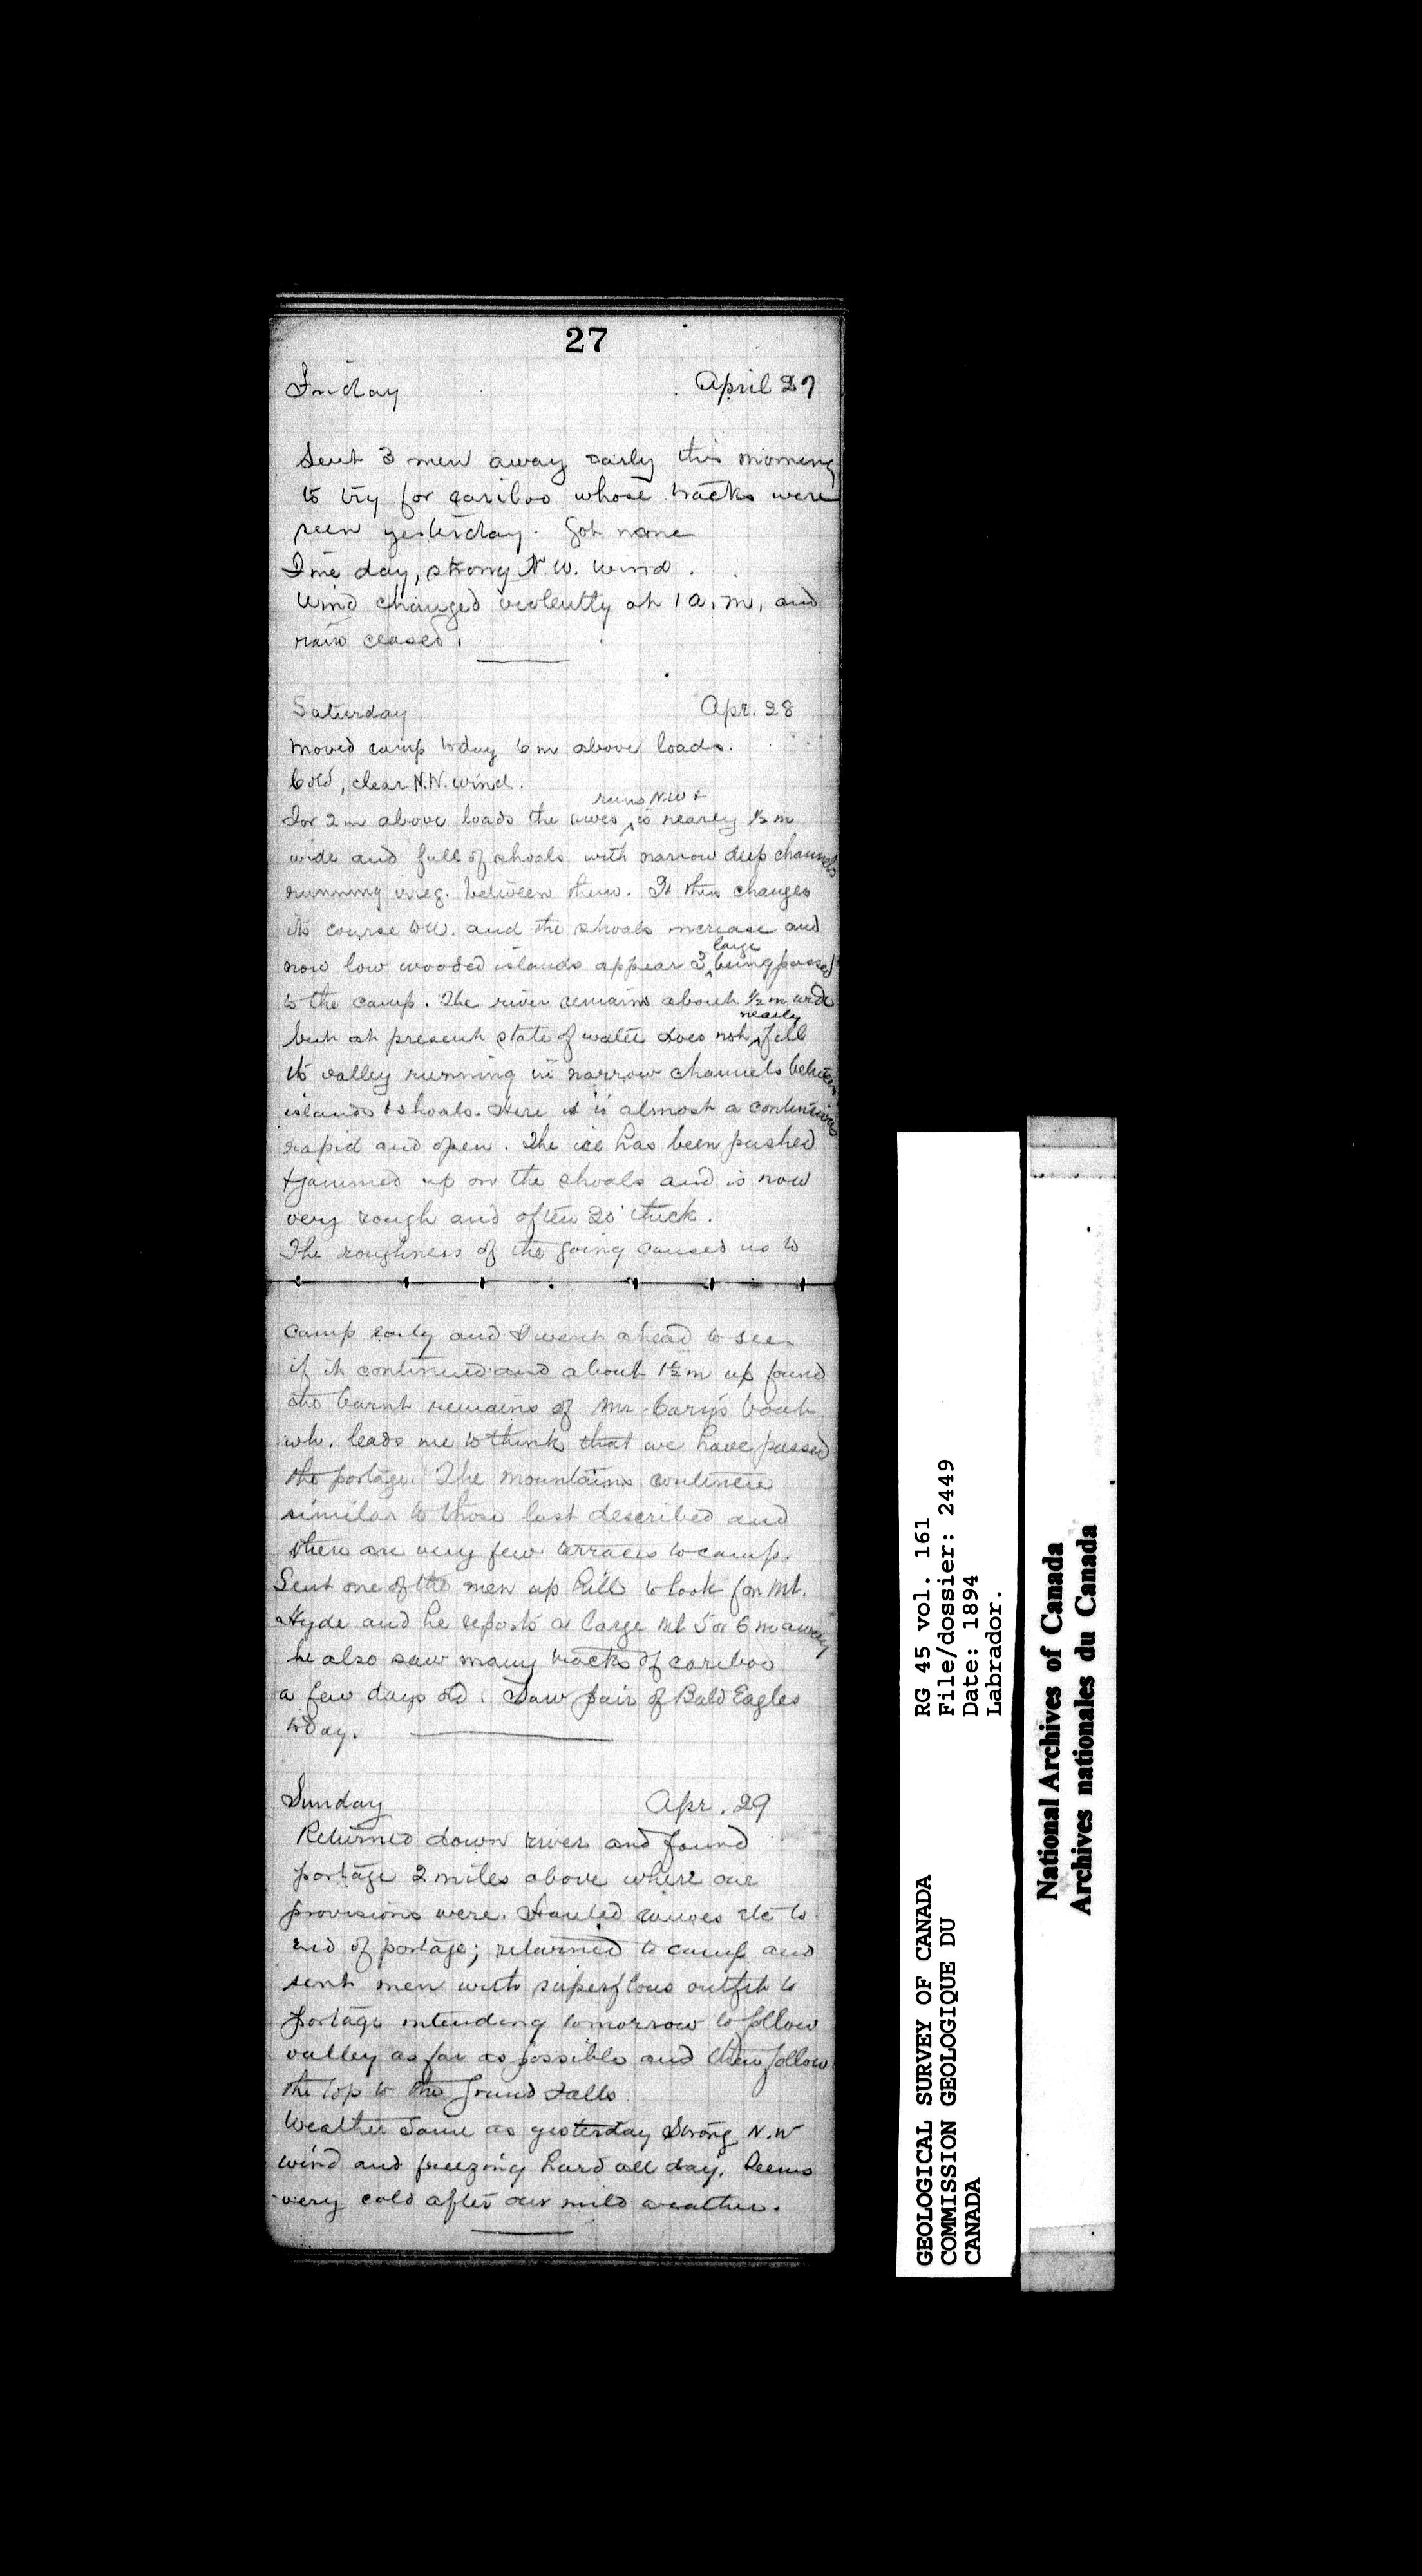 27
Friday April 27
Sent 3 men away early this morning
to try for cariboo whose tracks were
seen yesterday. Got none
Fine day, strong N.W. wind.
Wind changed violently at 1 a.m. and
rain ceased.
Saturday Apr. 28
Moved camp today 6 m above loads.
Cold, clear N.W. wind.
For 2 m above loads the river runs N.W & is nearly ½ m
wide and full of shoals with narrow deep channels
running irreg. between them. It then changes
its course to W. and the shoals increase and
now low wooded islands appear 3 large being passed
to the camp. The river remains about ½ m wide
but at present state of water does not nearly fill
its valley running in narrow channels between
islands & shoals. Here it is almost a continuous
rapid and open. The ice has been pushed
& jammed up on the shoals and is now
very rough and often 20' thick.
The roughness of the going caused us to
camp early and I went ahead to see
if it continued and about 1½ m up found
the burnt remains of Mr Cary's boat
wh. leads me to think that we have passed
the portage. The mountains continue
similar to those last described and
there are very few terraces to camp.
Sent one of the men up hill to look for Mt.
Hyde and he reports a large Mt 5 or 6 m away
he also saw many tracks of cariboo
a few days old. Saw pair of Bald Eagles
today.
Sunday Apr. 29
Returned down river and found
portage 2 miles above where our
provisions were. Hauled canoes etc to
end of portage; returned to camp and
sent men with superflous outfit to
portage intending tomorrow to follow
valley as far as possible and then follow
the top to the Grand Falls
Weather same as yesterday Strong N.W
wind and freezing hard all day. Seems
very cold after our mild weather.
GEOLOGICAL SURVEY OF CANADA
COMMISSION GEOLOGIQUE DU
CANADA
RG 45 vol. 161
File/dossier: 2449
Date: 1894
Labrador.
National Archives of Canada
Archives nationales du Canada